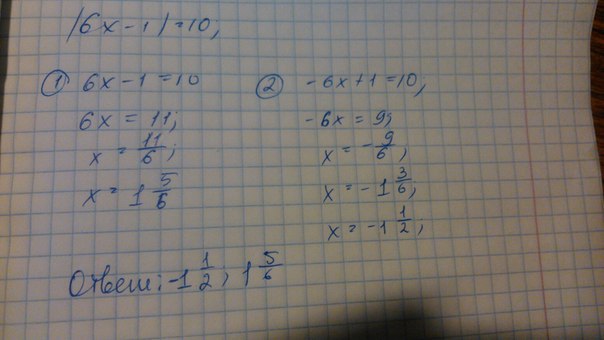 |6x-1|=10;
① 6x-1=10
6x=11;
x=11/6;
x=1 5/6
② -6x+1=10;
-6x=9;
x=-9/6;
x=-1 3/6;
x=-1 1/2;
Ответ: -1 1/2; 1 5/6